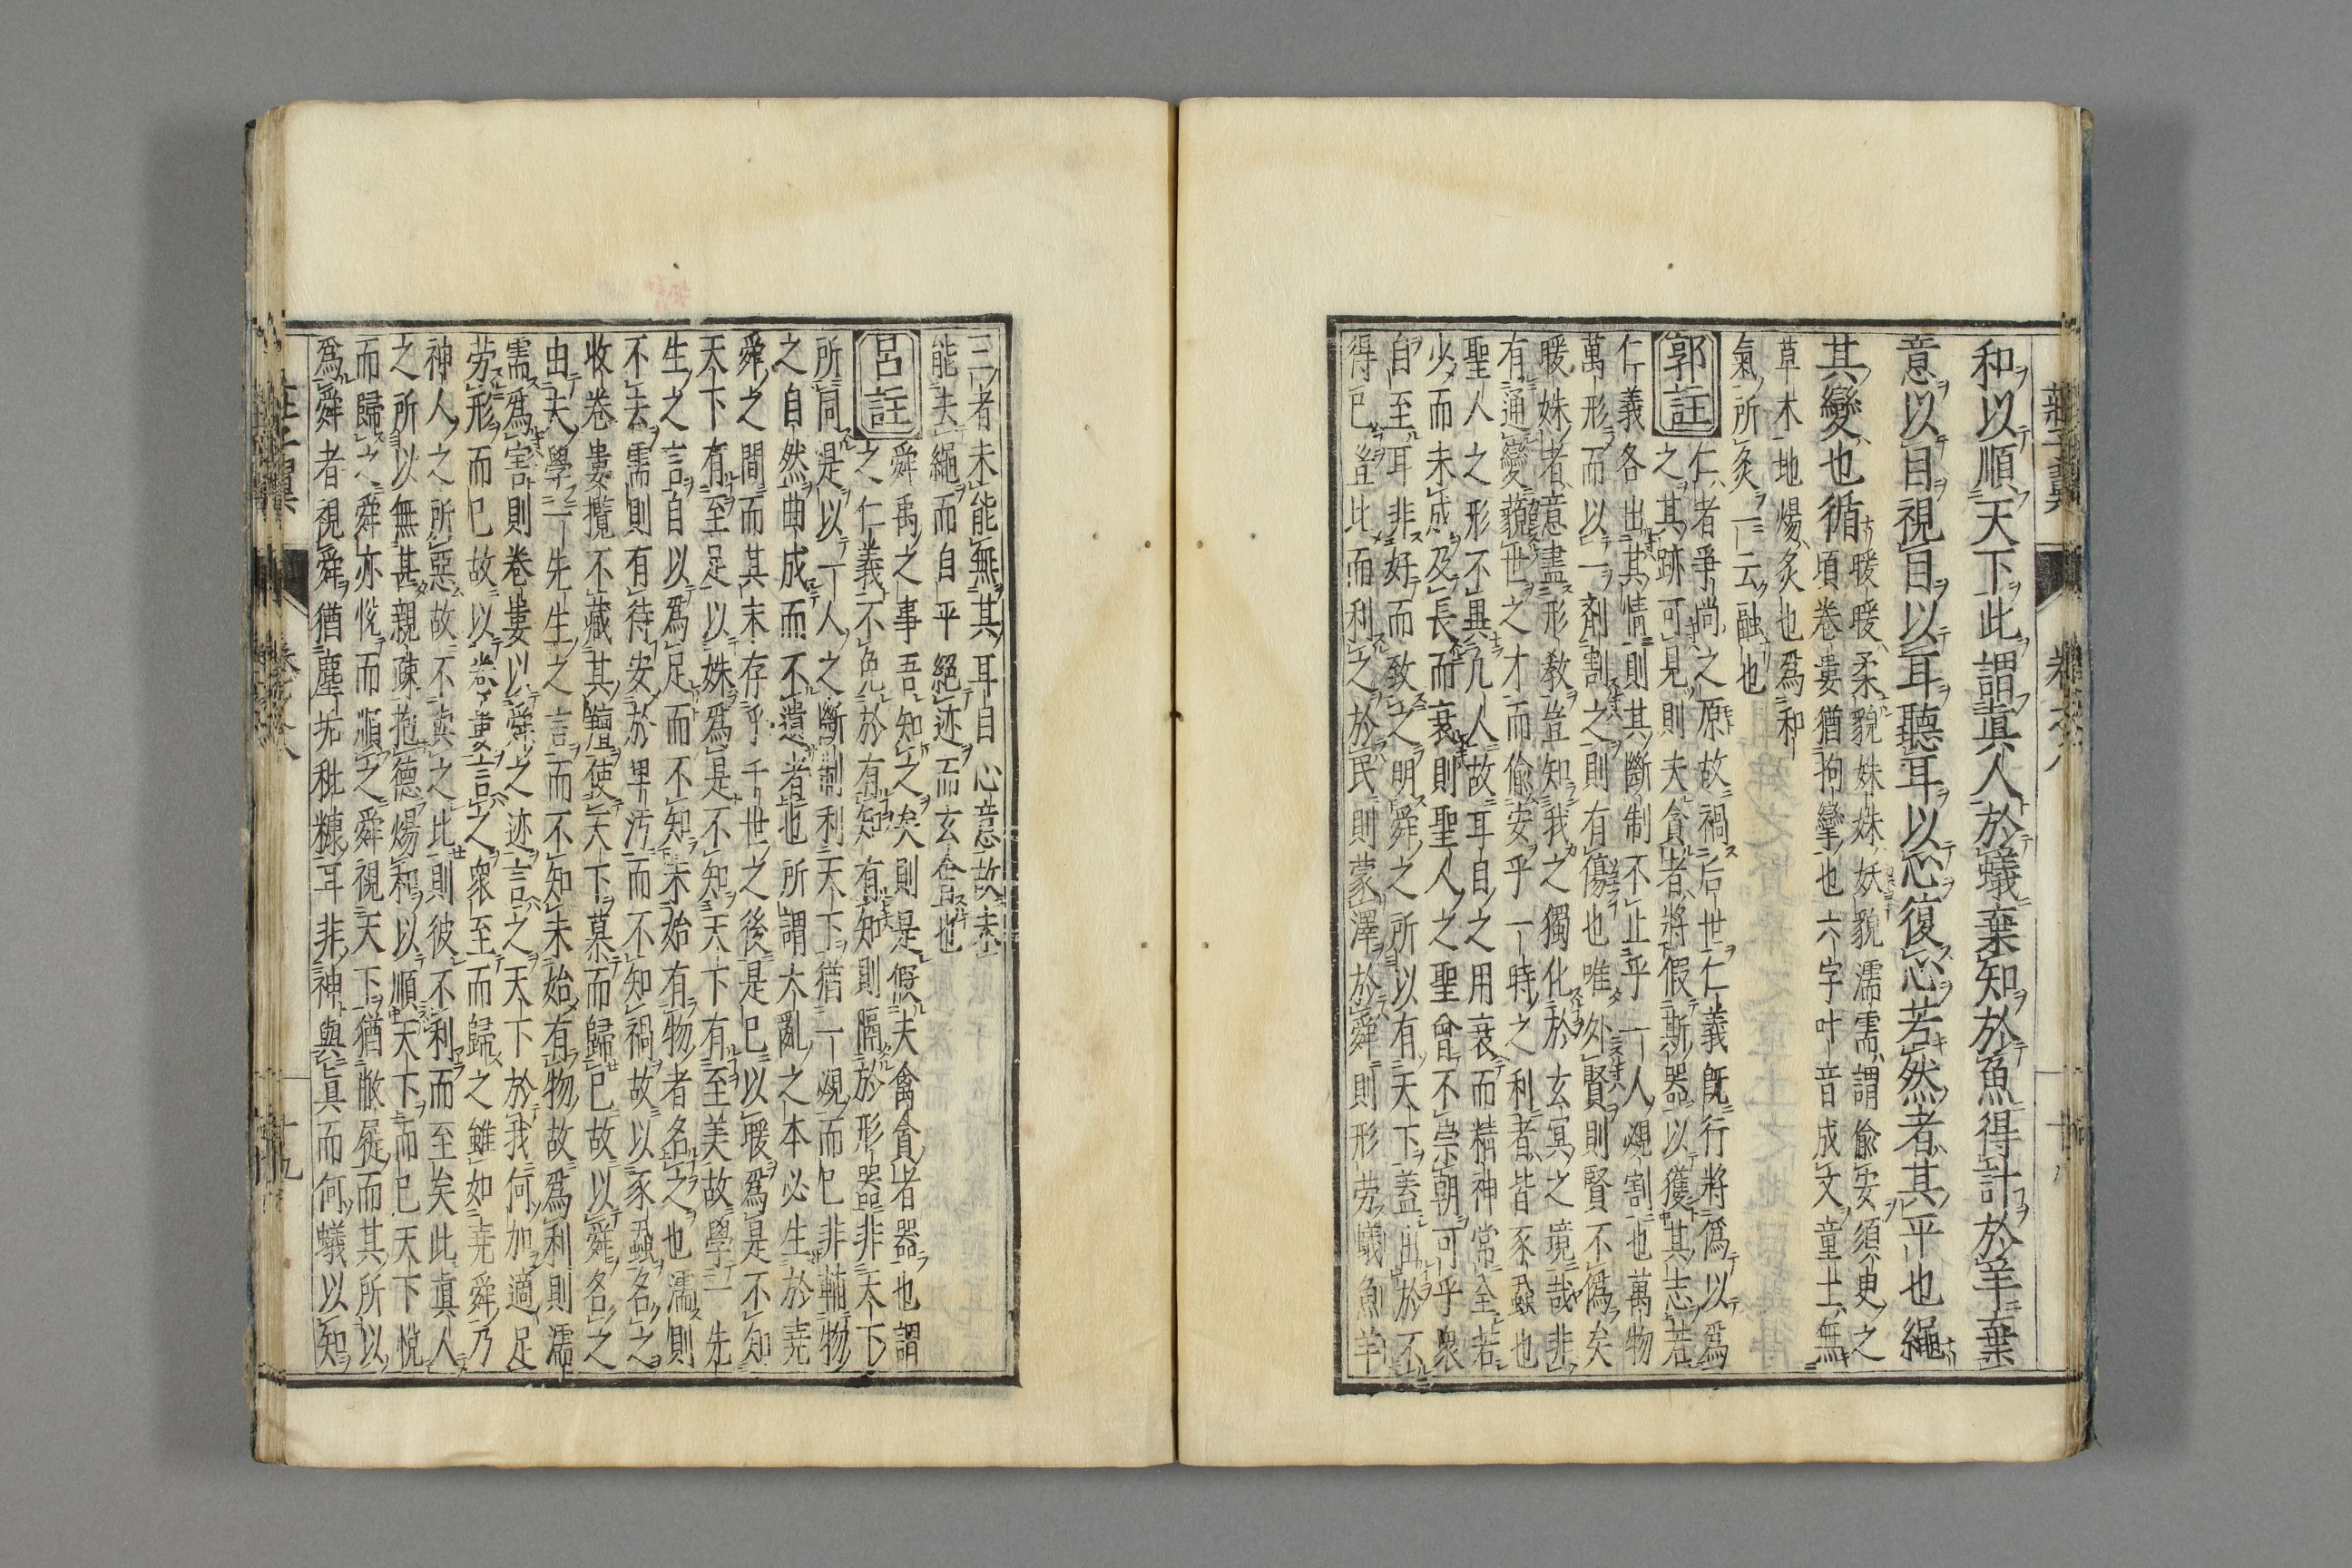 莊子翼 卷之八
和以順天下此謂眞人於蟻棄知於魚得計於羊棄
意以目視目以耳聽耳以心復心若然者其平也繩
其變也循
暖暖柔貌姝姝妖貌濡需謂偸安須臾之
頃卷婁猶拘攣也六字叶音成文童土無
草木地煬炙也爲和
氣所炙一云融也
郭註
仁者爭尚之原故禍后世仁義既行將僞以爲
之其跡可見則夫貪者將假斯器以獲其志若
仁義各出其情則其斷制不止乎一人覕割也萬物
萬形而以一劑割之則有傷也唯外賢則賢不僞矣
暖姝者意盡形教豈知我之獨化於玄冥之境哉非
有通變藐世之才而偸安乎一時之利者皆豕蝨也
聖人之形不異凡人故耳自之用衰而精神常全若
少而未成及長而衰則聖人之聖曾不崇朝可乎衆
自至耳非好而致之明舜之所以有天下蓋出於不
得已豈比而利之於民則蒙澤於舜則形勞蟻魚羊
三者未能無其耳目心意故未
能去繩而自平絕迹而玄會也
呂註
舜禹之事吾知之矣則是假夫禽貪者器也謂
之仁義不免於有知有知則隔於形器非天下
所同是以一人之斷制利天下猶一覕而已非輔物
之自然曲成而不遺者也所謂大亂之本必生於堯
舜之間而其末存乎千世之後是已以暖爲是不知
天下有至足以姝爲是不知天下有至美故學一先
生之言自以爲足而不知未始有物者名之也濡則
不去需則有待安於卑汚而不知禍故以豕蝨名之
收卷婁攬不藏其羶使天下慕而歸已故以舜名之
由夫學一先生之言而不知未始有物故爲利則濡
需爲害則卷婁以舜之迹言之天下於我何加適足
勞形而已故以卷婁言之衆至而歸之雖如堯舜乃
神人之所惡故不與之比則彼不利而至矣此眞人
之所以無甚親疎抱德煬和以順天下而已天下悅
而歸之舜亦悅而順之舜視天下猶敝屣而其所以
爲舜者視舜猶塵垢粃糠耳非神與眞而何蟻以知
莊子翼 卷之八 十九